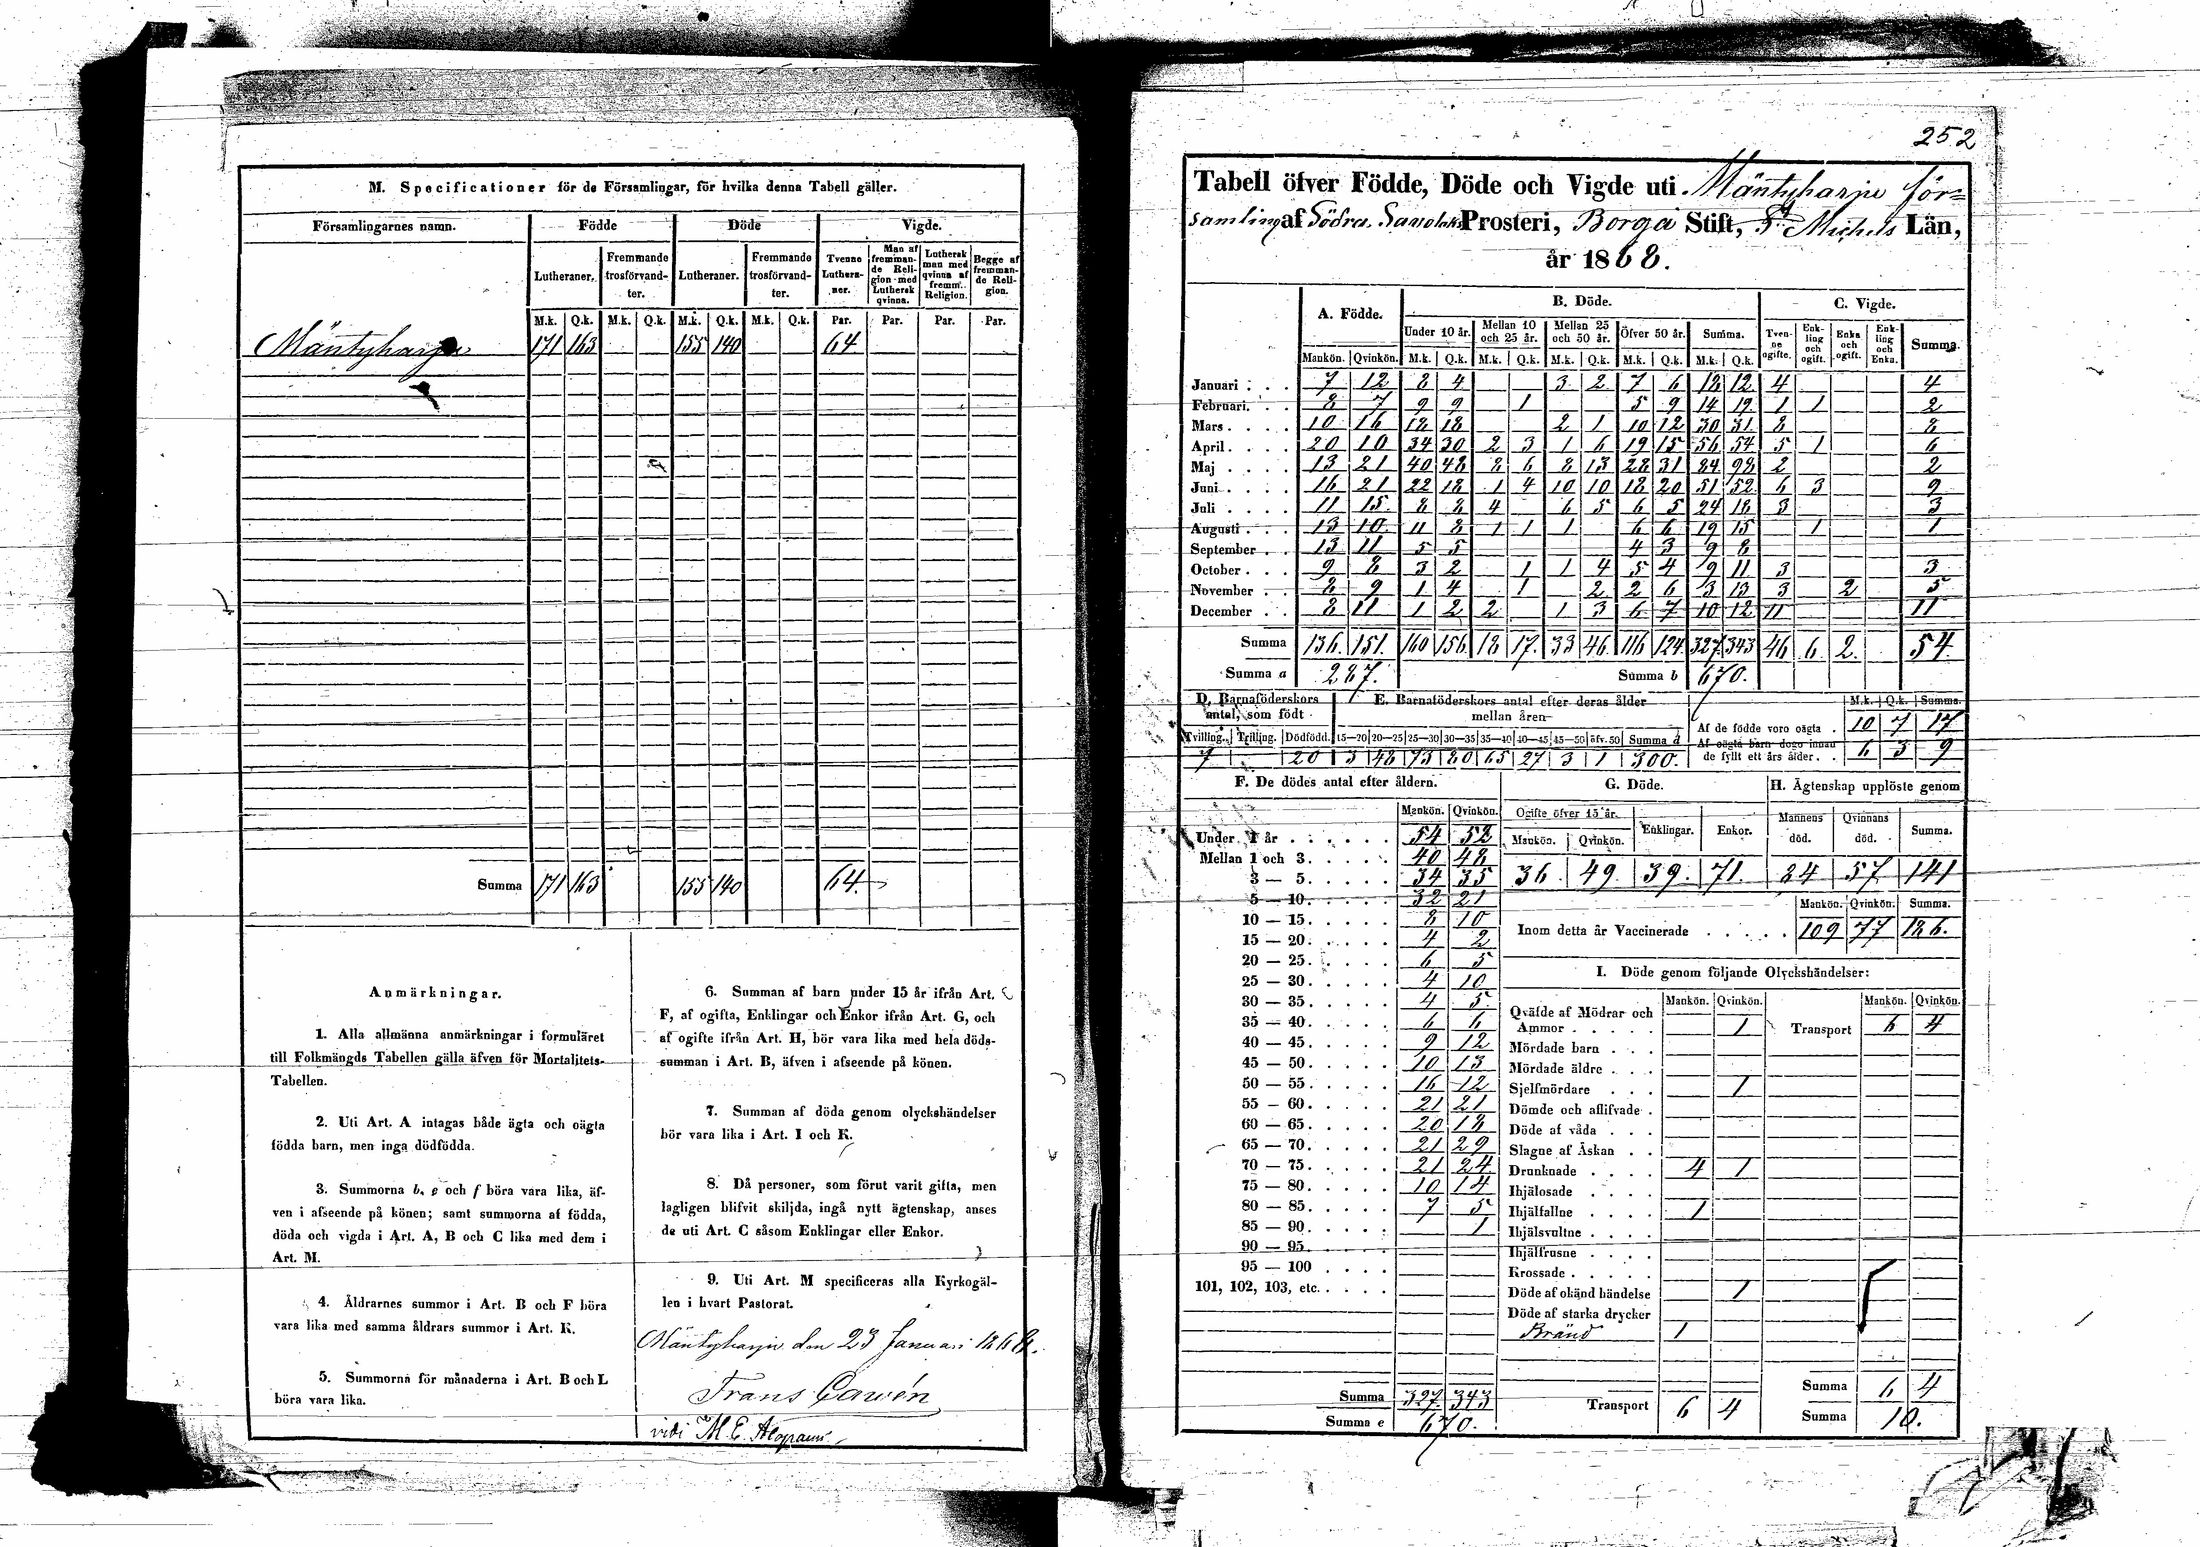 M. Specificationer för de Församlingar, för hvilka denna Tabell gäller.
Församlingarnes namn. Födde Döde Vigde.
Lutheraner. Fremmande trosförvandter. Lutheraner. Fremmande trosförvandter. Tvenne Lutheraner. Man af fremmande Religion med Luthersk qvinna. Luthersk man med qvinna af fremm. Religion. Begge af fremmande Religion.
M.k. Q.k. M.k. Q.k. M.k. Q.k. M.k. Q.k. Par. Par. Par. Par.
Mäntyharju 171 163 155 140 64
Summa 171 163 155 140 64
Anmärkningar.
1. Alla allmänna anmärkningar i formuläret
till Folkmängds Tabellen gälla äfven för Mortalitets-
Tabellen.
2. Uti Art. A intagas både ägta och oägta
födda barn, men inga dödfödda.
3. Summorna b, e och f böra vara lika, äf-
ven i afseende på könen; samt summorna af födda,
döda och vigda i Art. A, B och C lika med dem i
Art. M.
4. Åldrarnes summor i Art. B och F böra
vara lika med samma åldrars summor i Art. K.
5. Summorna för månaderna i Art. B och L
böra vara lika.
6. Summan af barn under 15 år ifrån Art.
F, af ogifta, Enklingar och Enkor ifrån Art. G, och
af ogifte ifrån Art. H, bör vara lika med hela döds-
summan i Art. B, äfven i afseende på könen.
7. Summan af döda genom olyckshändelser
bör vara lika i Art. I och K.
8. Då personer, som förut varit gifta, men
lagligen blifvit skiljda, ingå nytt ägtenskap, anses
de uti Art. C såsom Enklingar eller Enkor.
9. Uti Art. M specificeras alla Kyrkogäl-
len i hvart Pastorat.
Mäntyharju den 23 Januari 1868.
Frans Cawén
vidi M. E.
252
Tabell öfver Födde, Döde och Vigde uti Mäntyharju för-
samling af Södra Savolaks Prosteri, Borgå Stift, St Michels Län,
år 1868.
A. Födde. B. Döde. C. Vigde.
Under 10 år. Mellan 10 och 25 år. Mellan 25 och 50 år. Öfver 50 år. Summa. Tvenne ogifte. Enkling och ogift. Enka och ogift. Enkling och Enka. Summa.
Mankön. Qvinkön. M.k. Q.k. M.k. Q.k. M.k. Q.k. M.k. Q.k. M.k. Q.k.
Januari 7 12 8 4 3 2 7 6 18 12 4 4
Februari 8 7 9 9 1 5 9 14 19 1 1 2
Mars 10 16 18 18 2 1 10 12 30 31 8 8
April 20 10 34 30 2 3 1 6 19 15 56 54 5 1 6
Maj 13 21 40 48 8 6 8 13 28 31 84 98 2 2
Juni 16 21 22 18 1 4 10 10 18 20 51 52 6 3 9
Juli 11 15 8 8 4 6 5 6 5 24 18 3 3
Augusti 13 10 11 8 1 1 1 6 6 19 15 1 1
September 13 11 5 5 4 3 9 8
October 9 8 3 2 1 1 4 5 4 9 11 3 3
November 8 9 1 4 1 2 2 6 3 13 3 2 5
December 8 11 1 2 2 1 3 6 7 10 12 11 11
Summa 136. 151. 160 156 18 17. 33 46. 116 124 327 343 46 6 2. 54.
Summa a 287. Summa b 670.
D. Barnaföderskors antal, som födt E. Barnaföderskors antal efter deras ålder mellan åren M.k. Q.k. Summa.
Tvilling. Trilling. Dödfödd. 15—20 20—25 25—30 30—35 35—40 40—45 45—50 öfv. 50 Summa d
7 20 3 48 73 80 65 27 3 1 300.
Af de födde voro oägta 10 7 17
Af oägta barn dogo innan
de fyllt ett års ålder 6 3 9
F. De dödes antal efter åldern.
Mankön. Qvinkön.
Under 1 år 54 52
Mellan 1 och 3 40 48
3 — 5 34 35
5 — 10 32 21
10 — 15 8 10
15 — 20 4 2
20 — 25 6 5
25 — 30 4 10
30 — 35 4 5
35 — 40 6 6
40 — 45 9 12
45 — 50 10 13
50 — 55 16 12
55 — 60 21 21
60 — 65 20 18
65 — 70 21 29
70 — 75 21 24
75 — 80 10 14
80 — 85 7 5
85 — 90 1
90 — 95
95 — 100
101, 102, 103, etc.
Summa 327. 343
Summa e 670.
G. Döde. H. Ägtenskap upplöste genom
Ogifte öfver 15 år. Enklingar. Enkor. Mannens död. Qvinnans död. Summa.
Mankön. Qvinkön.
36. 49. 39. 71. 84 57 141
Mankön. Qvinkön. Summa.
Inom detta år Vaccinerade 109 77 186.
I. Döde genom följande Olyckshändelser:
Mankön. Qvinkön. Mankön. Qvinkön.
Qväfde af Mödrar och
Ammor 1 Transport 6 4
Mördade barn
Mördade äldre
Sjelfmördare 1
Dömde och aflifvade
Döde af våda
Slagne af Åskan
Drunknade 4 1
Ihjälosade
Ihjälfallne 1
Ihjälsvultne
Ihjälfrusne
Krossade
Döde af okänd händelse 1
Döde af starka drycker
Bränd 1
Transport 6 4
Summa 6 4
Summa 10.